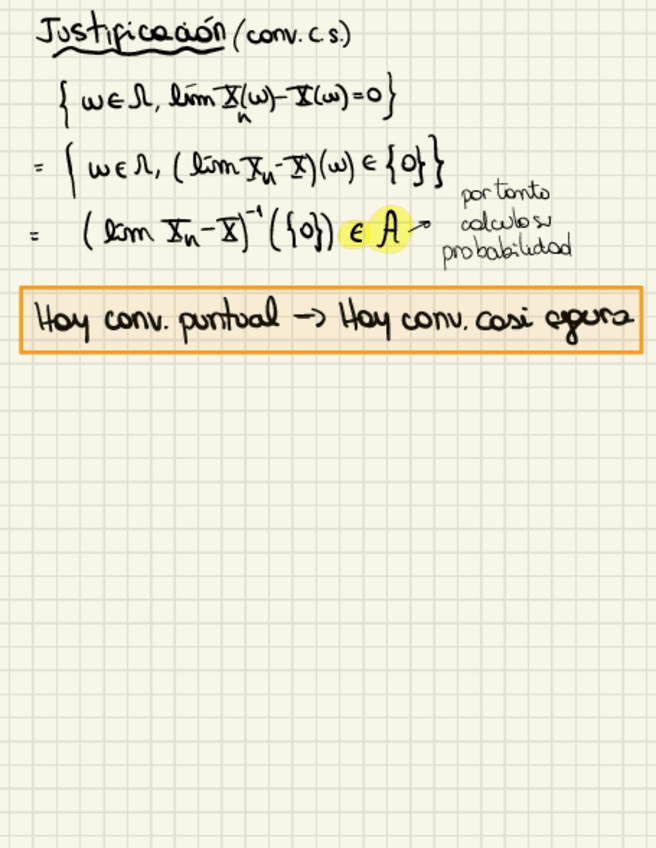 Justificación (conv. c.s.)
{ ω ∈ Ω, lím X_n(ω) - X(ω) = 0 }
= { ω ∈ Ω, (lím X_n - X)(ω) ∈ {0} }
= (lím X_n - X)⁻¹ ({0}) ∈ A → por tanto
calculo su
probabilidad
Hay conv. puntual → Hay conv. casi segura